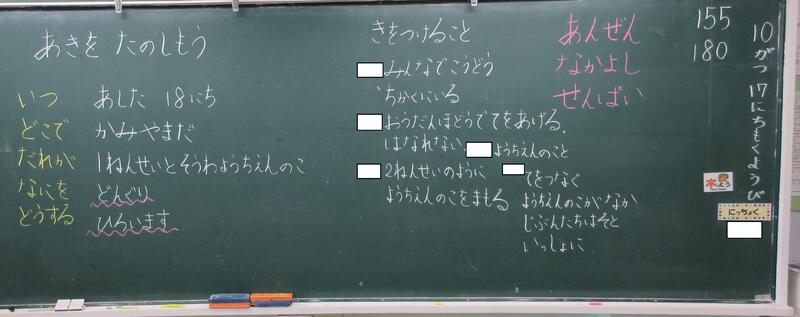 あきを たのしもう
いつ あした 18にち
どこで かみやまだ
だれが 1ねんせいとそうわようちえんのこ
なにを どんぐり
どうする ひろいます
きをつけること
みんなでこうどう
ちかくにいる
おうだんほどうでてをあげる.
はなれない
ようちえんのこと
2ねんせいのように
ようちえんのこをまもる
てをつなぐ
ようちえんのこがなか
じぶんたちはそと
いっしょに
あんぜん
なかよし
せんぱい
155
180
10がつ 17にちもくようび
木よう
にっちょく